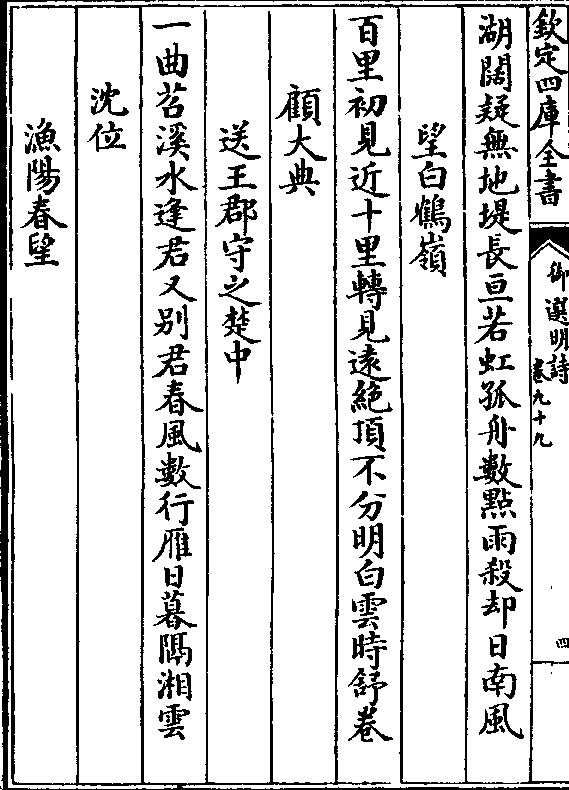 欽定四庫全書
御選明詩
卷九十九
四
湖闊疑無地堤長亘若虹孤舟數點雨殺却日南風
望白鶴嶺
百里初見近十里轉見遠絶頂不分明白雲時舒卷
顧大典
送王郡守之楚中
一曲苕溪水逢君又别君春風數行雁日暮隔湘雲
沈位
漁陽春望